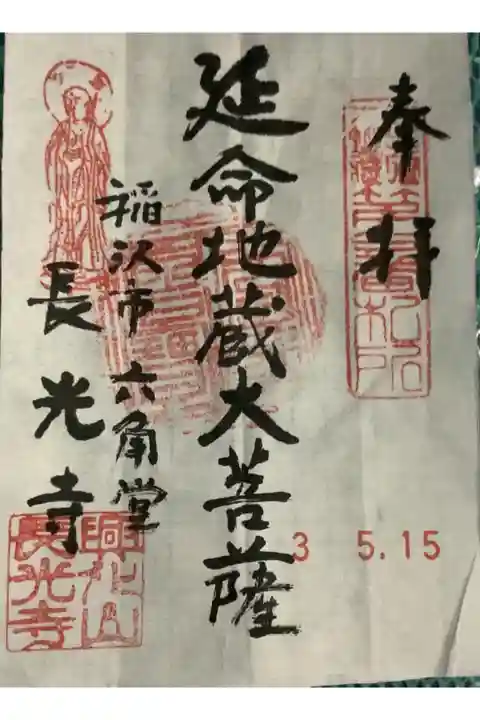 奉拝
延命地蔵大菩薩
稲沢市六角堂
長光寺
3 5.15
興化山
長光寺